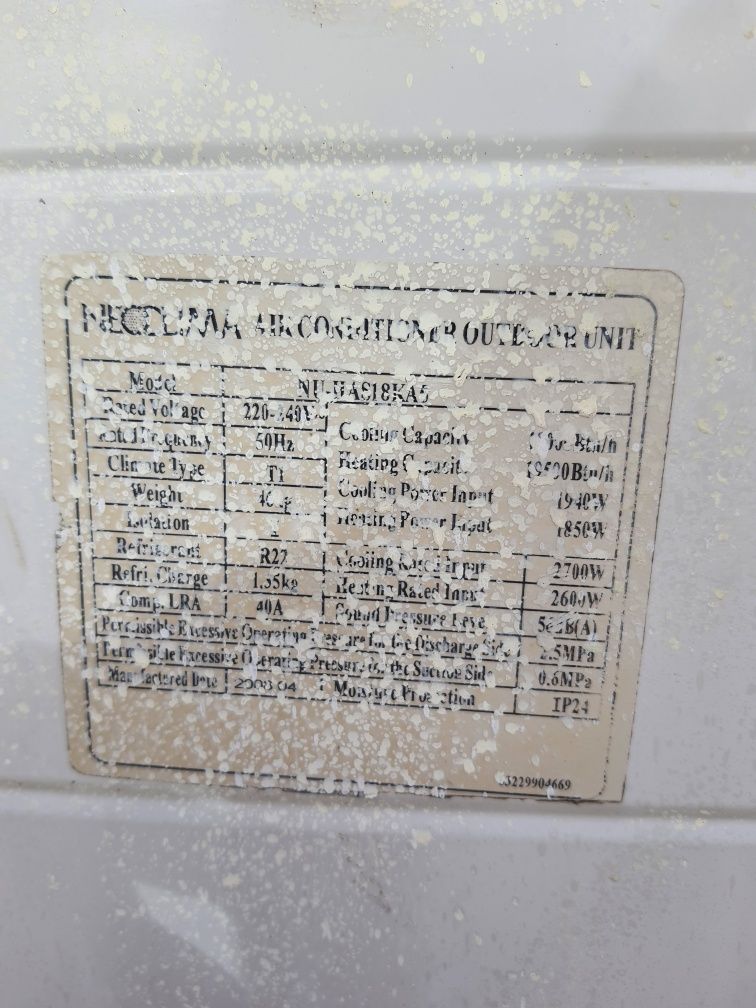 NEOCLIMA AIR CONDITIONER OUTDOOR UNIT
Model
Rated Voltage 220-240V Cooling Capacity
Rated Frequency 50Hz Heating Capacity
Climate Type T1 Cooling Power Input 1940W
Weight Heating Power Input 1850W
Isolation I
Refrigerant R22 Cooling Rated Input 2700W
Refri. Charge 1.35kg Heating Rated Input 2600W
Comp. LRA 40A Sound Pressure Level
Permissible Excessive Operating Pressure for the Discharge Side 2.5MPa
Permissible Excessive Operating Pressure for the Suction Side 0.6MPa
Manufactured Date 2008.04 Moisture Protection IP24